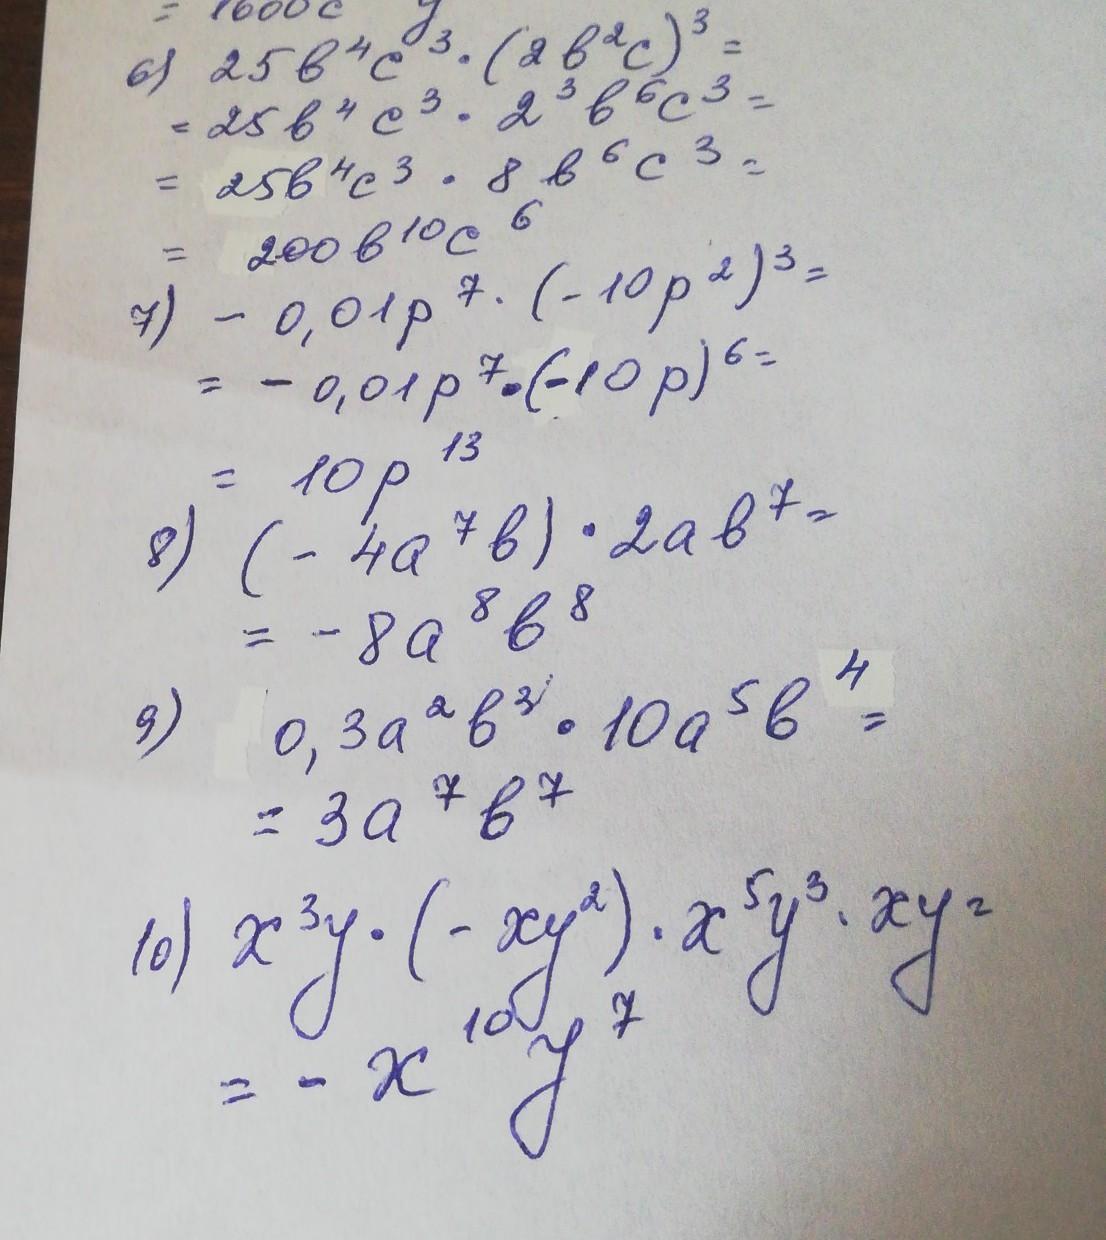 = 1600c y
6) 25b⁴c³·(2b²c)³=
=25b⁴c³·2³b⁶c³=
= 25b⁴c³·8b⁶c³=
= 200b¹⁰c⁶
7) -0,01p⁷·(-10p²)³=
= -0,01p⁷·(-10p)⁶=
= 10p¹³
8) (-4a⁷b)·2ab⁷=
= -8a⁸b⁸
9) 0,3a²b³·10a⁵b⁴=
= 3a⁷b⁷
10) x³y·(-xy²)·x⁵y³·xy=
= -x¹⁰y⁷